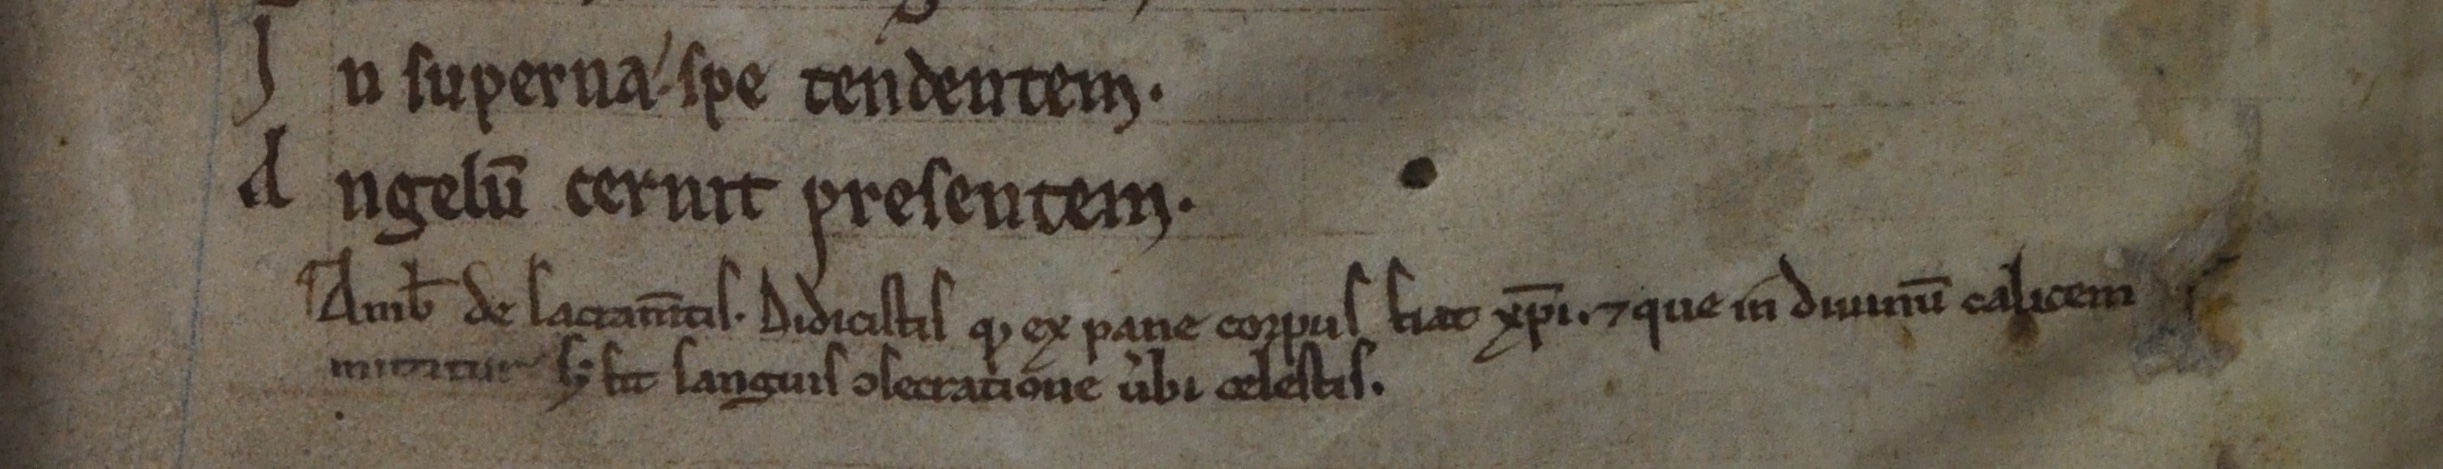 In superna spe tendentem.
Angelū cernit presentem.
Amb̄ de sacram̄tis. Didicistis qđ ex pane corpus fiat xp̄i. ⁊ que in diuinū calicem
mittitur sꝫ fit sanguis ɔsecratione u̓bi celestis.